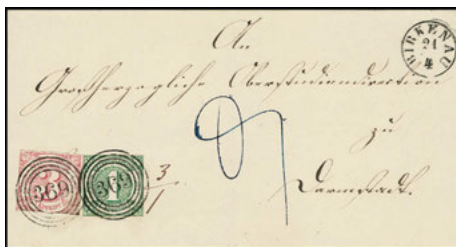 BIRKENAU
21
4
An
Großherzogliche Oberstudiendirection
zu
Darmstadt.
3
1
369
369
3
1